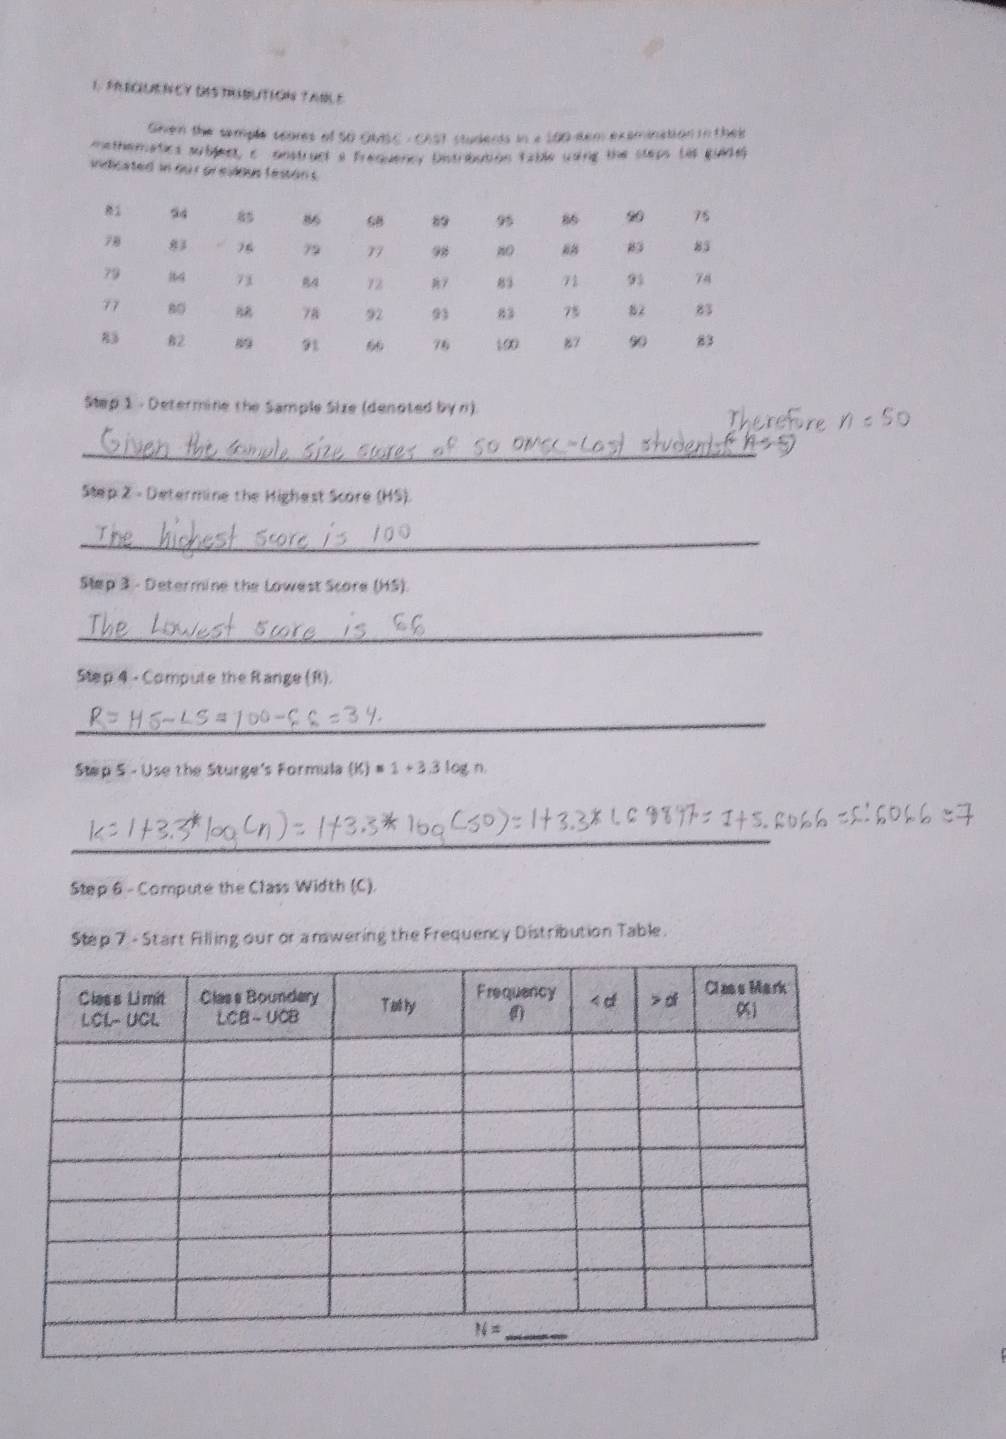 I. FREQUENCY DISTRIBUTION TABLE
Given the sample scores of 50 OMSC - CAST students in a 100 item examination in their
mathematics subject, c onstruct a Frequency Distribution Table using the steps (as guide)
indicated in our previous lessons.
81 94 85 86 68 89 95 86 90 75
78 83 76 79 77 98 80 88 83 83
79 84 73 84 72 87 83 71 93 74
77 80 88 78 92 93 83 75 82 83
83 82 89 91 66 76 100 87 90 83
Step 1 - Determine the Sample Size (denoted by n).
Therefore n = 50
Given the sample size scores of 50 OMSC-Cast students
Step 2 - Determine the Highest Score (HS).
The highest score is 100
Step 3 - Determine the Lowest Score (HS).
The Lowest score is 66
Step 4 - Compute the Range (R).
R = HS-LS = 100-66 = 34.
Step 5 - Use the Sturge's Formula (K) = 1 + 3.3 log n.
K = 1+3.3*log(n) = 1+3.3*log(50) = 1+3.3* 1.69897 = 1+5.6066 = 6.6066 = 7
Step 6 - Compute the Class Width (C).
Step 7 - Start Filling our or answering the Frequency Distribution Table.
Class Limit Class Boundary Tally Frequency < cf > cf Class Mark
LCL- UCL LCB - UCB (f) (X)
N = ______